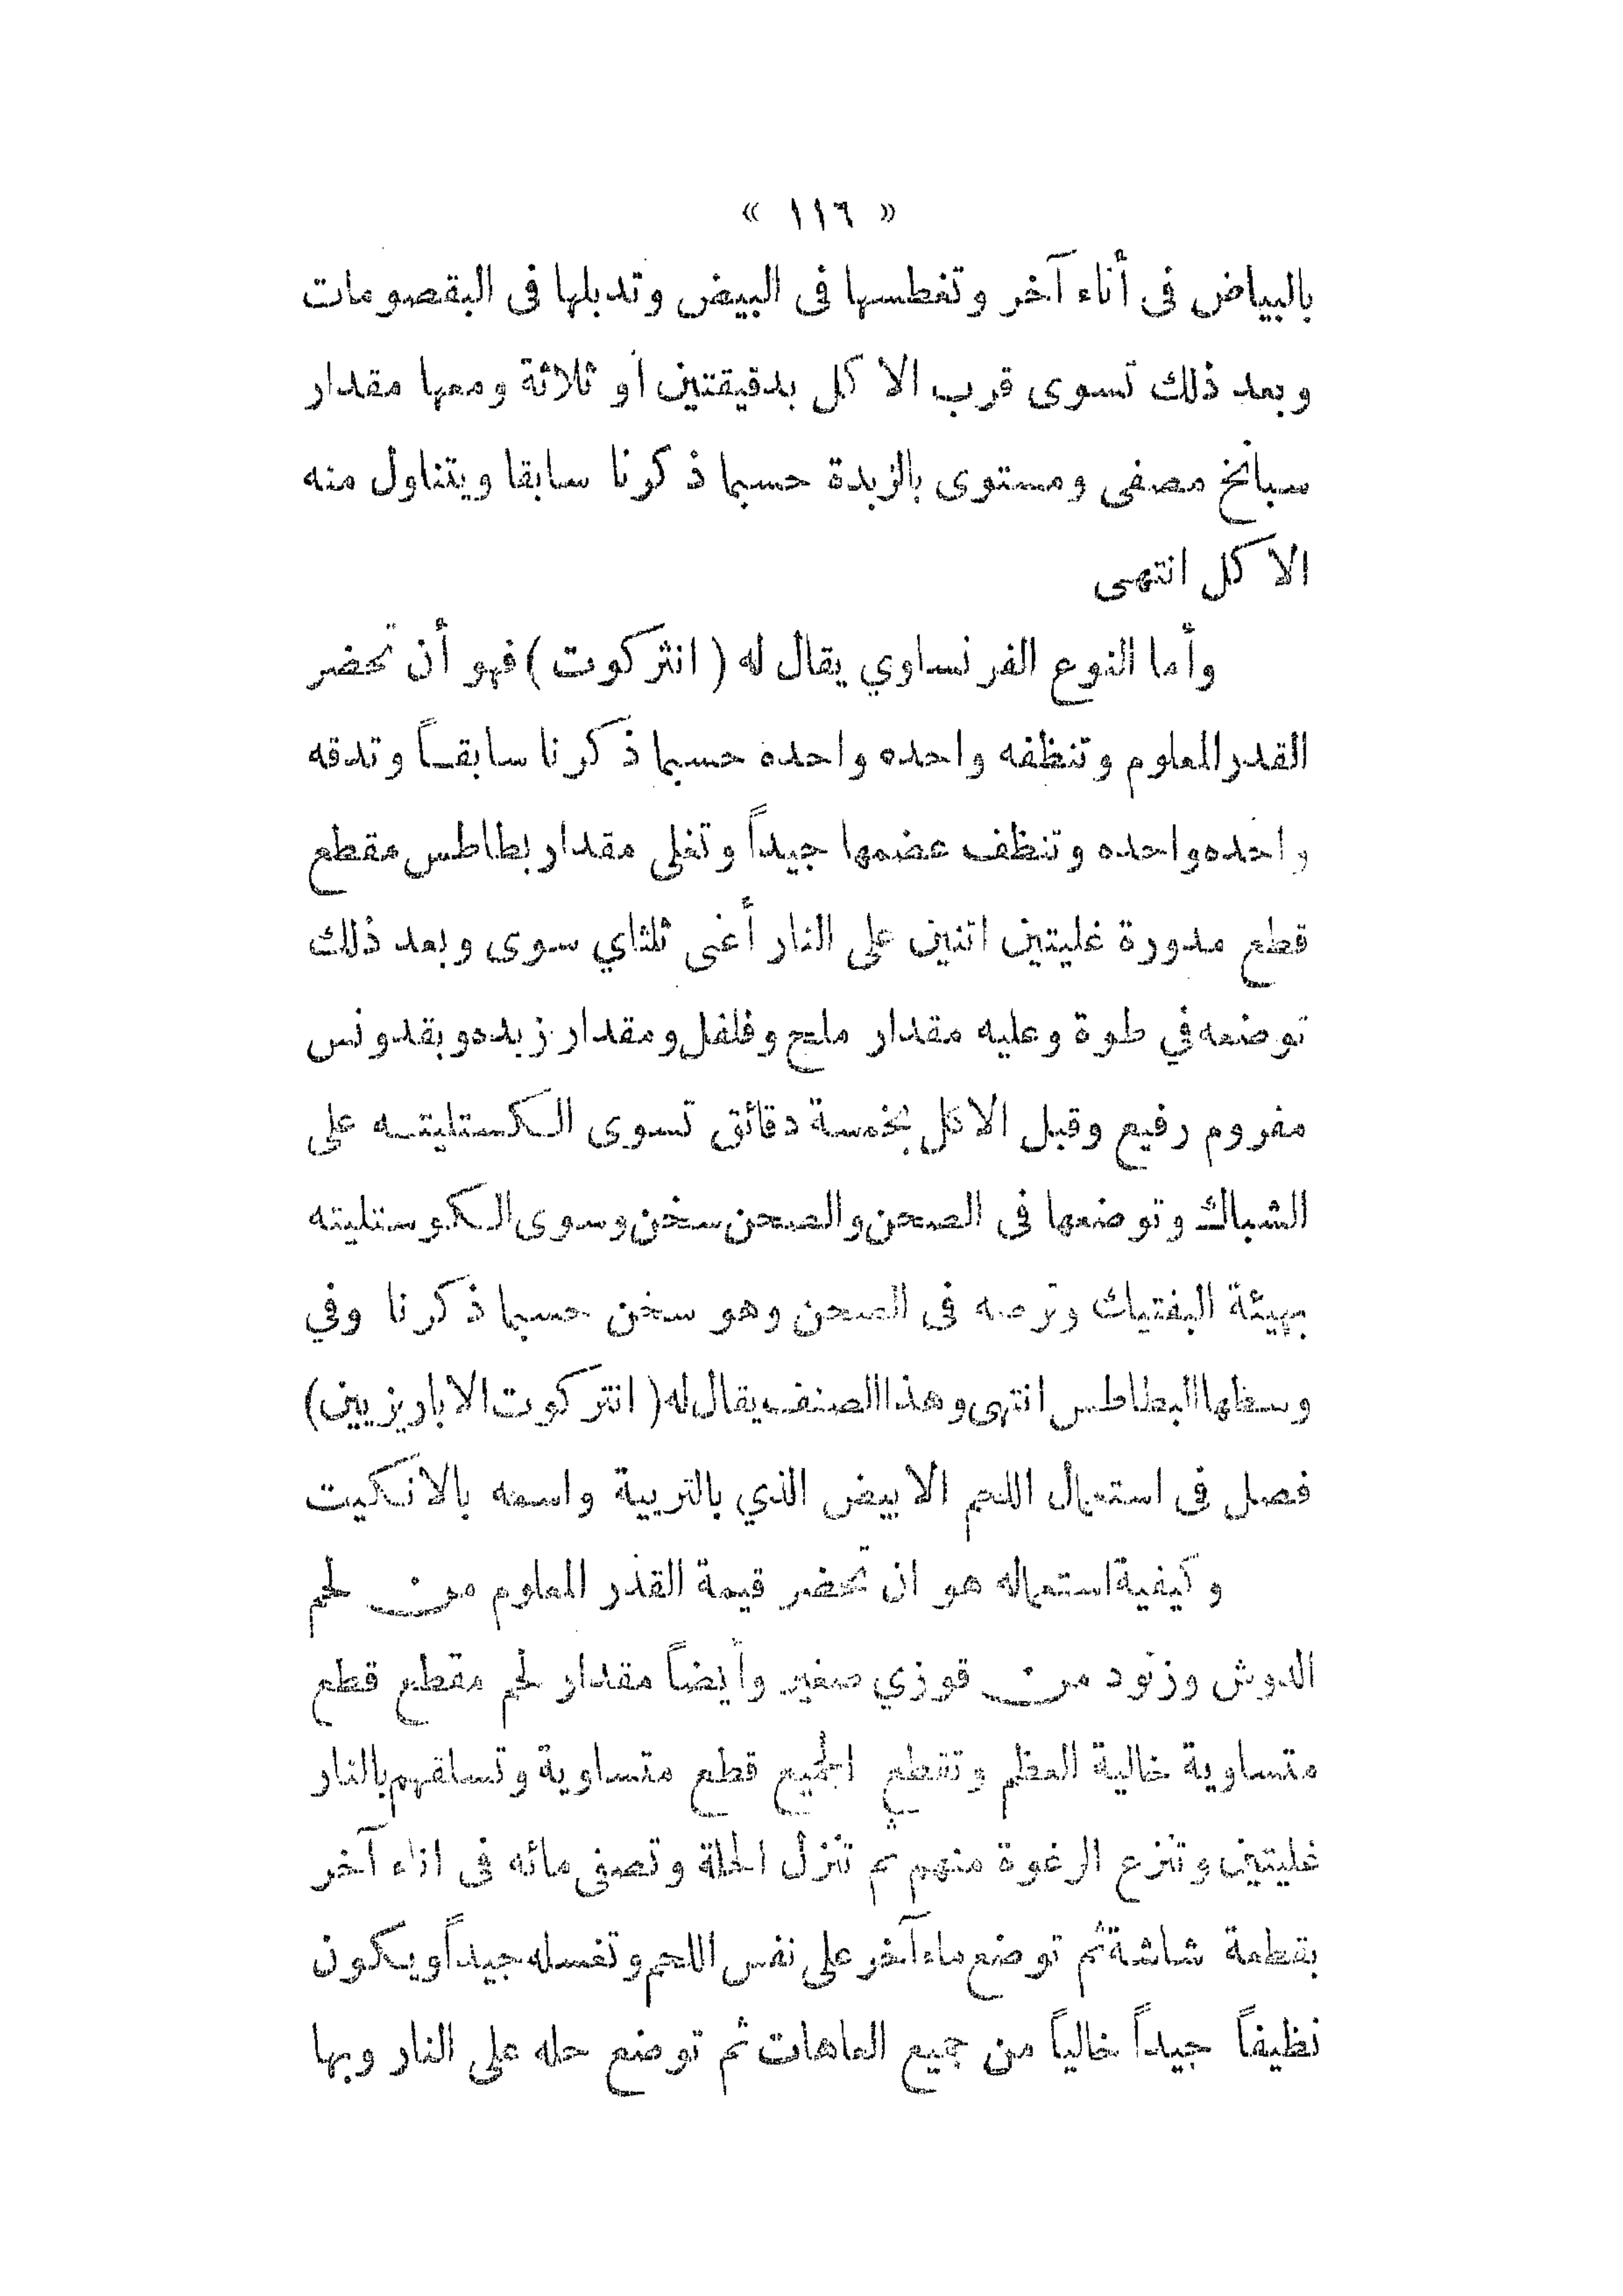 « ١١٦ »
بالبياض فى أناء آخر وتغطسها فى البيض وتدبلها فى البقصومات
وبعد ذلك تسوى قرب الاكل بدقيقتين او ثلاثة ومعها مقدار
سبانخ مصفى ومستوى بالزبدة حسبما ذكرنا سابقا ويتناول منه
الاكل انتهى
وأما النوع الفرنساوي يقال له ( انتركوت ) فهو أن تحضر
القدر المعلوم وتنظفه واحده واحده حسبما ذكرنا سابقاً وتدقه
واحده واحده وتنظف عضمها جيداً وتغلى مقدار بطاطس مقطع
قطع مدورة غليتين اتنين على النار أعنى ثلثاي سوى وبعد ذلك
توضعه في طوة وعليه مقدار ملح وفلفل ومقدار زبده وبقدونس
مفروم رفيع وقبل الاكل بخمسة دقائق تسوى الكستليته على
الشباك وتوضعها فى الصحن والصحن سخن وسوى الكوستليته
بهيئة البفتياك وترصه فى الصحن وهو سخن حسبما ذكرنا وفي
وسطها البطاطس انتهى وهذا الصنف يقال له ( انتركوت الاباريزيين )
فصل فى استعمال اللحم الابيض الذي بالتربية واسمه بالانكيت
وكيفية استعماله هو ان تحضر قيمة القذر المعلوم من لحم
الدوش وزنود من قوزي صغير وأيضاً مقدار لحم مقطع قطع
متساوية خالية العظم وتقطع الجميع قطع متساوية وتسلقهم بالنار
غليتين وتنزع الرغوة منهم ثم تنزل الحلة وتصفى مائه فى اناء آخر
بقطعة شاشة ثم توضع ماء آخر على نفس اللحم وتغسله جيداً ويكون
نظيفاً جيداً خالياً من جميع العاهات ثم توضع حله على النار وبها